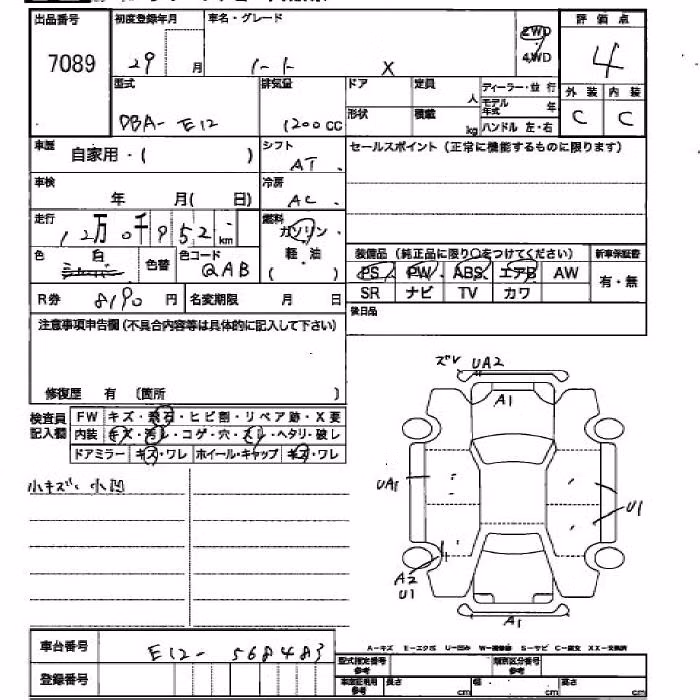 出品番号 初度登録年月 車名・グレード 評価点
7089 29 月 ノート X 2WD 4WD 4
型式 排気量 ドア 定員 人 ディーラー・並行 外装 内装
モデル年式 年
DBA-E12 1200cc 形状 積載 kg ハンドル 左・右 C C
車歴 自家用・( ) シフト AT セールスポイント(正常に機能するものに限ります)
車検 年 月( 日) 冷房 AC
走行 12万0千952 km 燃料 ガソリン・軽油 ( )
色 白 色替 色コード QAB
装備品(純正品に限り○をつけてください) 新車保証書
PS PW ABS エアB AW 有・無
SR ナビ TV カワ
R券 8190 円 名変期限 月 日
後日品
注意事項申告欄(不具合内容等は具体的に記入して下さい)
修復歴 有 〔箇所 〕
検査員記入欄 FW キズ・飛石・ヒビ割・リペア跡・X要
内装 キズ・汚レ・コゲ・穴・スレ・ヘタリ・破レ
ドアミラー キズ・ワレ ホイール・キャップ キズ・ワレ
小キズ・小凹
ズレ UA2
A1
UA1
U1
A2
U1
A1
A-キズ E-エクボ U-凹み W-補修跡 S-サビ C-腐食 XX-交換済
車台番号 E12-568483
登録番号
型式指定番号 参考 類別区分番号 参考
車庫証明用 参考 長さ cm 幅 cm 高さ cm